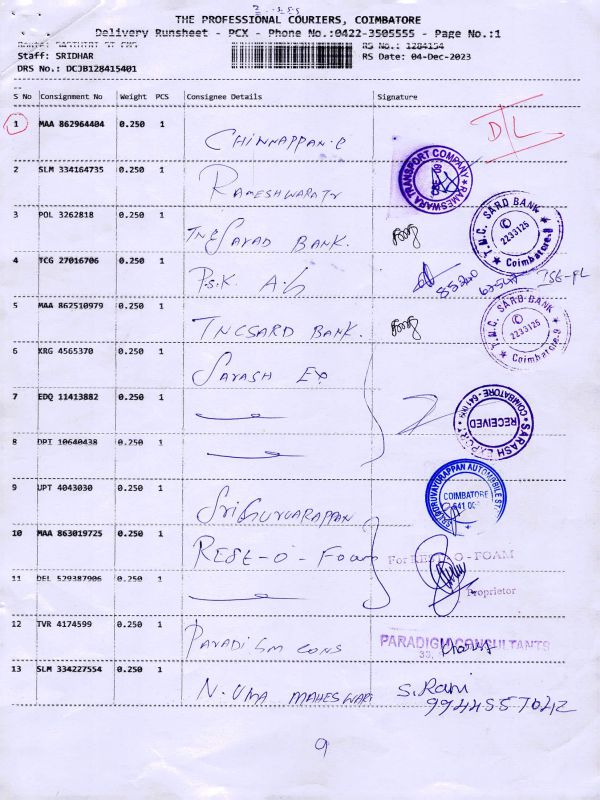 THE PROFESSIONAL COURIERS, COIMBATORE
Delivery Runsheet - PCX - Phone No.:0422-3505555 - Page No.:1
RS No.: 1284154
Staff: SRIDHAR RS Date: 04-Dec-2023
DRS No.: DCJB128415401
S No Consignment No Weight PCS Consignee Details Signature
1 MAA 862964404 0.250 1 CHINNAPPAN.C D/L
RAMESWARA TRANSPORT COMPANY
2 SLM 334164735 0.250 1 RAMESHWARA TR
T.M.C. SARD BANK
2233125
Coimbatore-9
3 POL 3262818 0.250 1 BANK.
4 TCG 27016706 0.250 1 P.S.K.
5 MAA 862510979 0.250 1 TNCSARD BANK.
T.M.C. SARD BANK
2233125
Coimbatore-9
6 KRG 4565370 0.250 1 SARASH EX
7 EDQ 11413882 0.250 1
SARASH EXPORT
RECEIVED
COIMBATORE - 641
8 DPI 10640438 0.250 1
SRI GURUVAYURAPPAN AUTOMOBILE
COIMBATORE
641
9 UPT 4043030 0.250 1 SRIGURUVARAPPAN
10 MAA 863019725 0.250 1 REST-O-FOAM For REST-O-FOAM
11 DEL 529387906 0.250 1 Proprietor
12 TVR 4174599 0.250 1 PARADIGM CONS PARADIGM CONSULTANTS
33,
13 SLM 334227554 0.250 1 N. UMA MAHESWARI S. Rani
9944557042
9